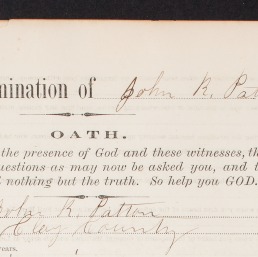 mination of John R. Pat
OATH.
the presence of God and these witnesses, th
uestions as may now be asked you, and t
l nothing but the truth. So help you GOD.
John R. Patton
Clay County
ears.